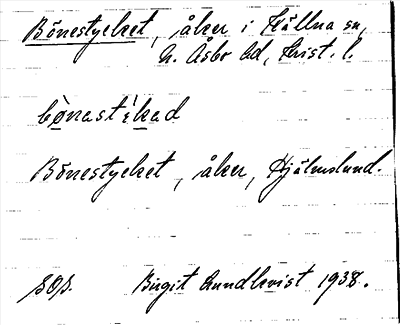 Bönestycket, åker i Källna sn,
N. Åsbo hd, Krist. l.
bø̀nastikad
Bönestycket, åker, Hjälmslund.
SOS. Birgit Lundkvist 1938.